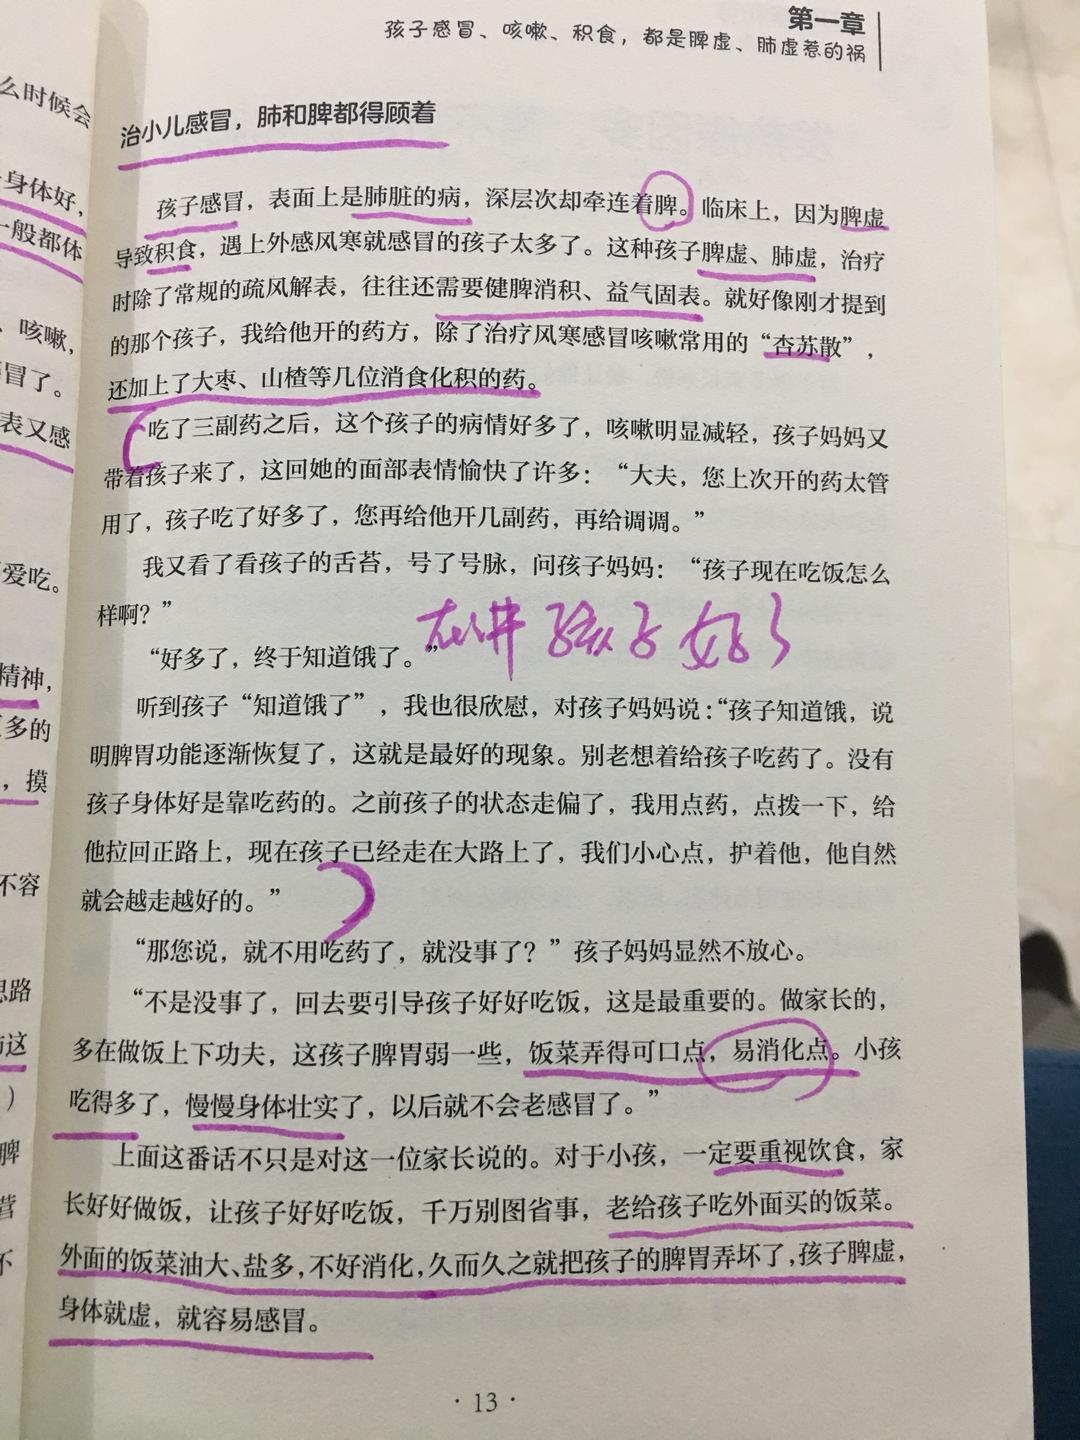 么时候会
身体好，
一般都体
、咳嗽，
冒了。
表又感
爱吃。
精神，
更多的
，摸
不容
思路
防这
）
脾
营
不
第一章
孩子感冒、咳嗽、积食，都是脾虚、肺虚惹的祸
治小儿感冒，肺和脾都得顾着
孩子感冒，表面上是肺脏的病，深层次却牵连着脾。临床上，因为脾虚
导致积食，遇上外感风寒就感冒的孩子太多了。这种孩子脾虚、肺虚，治疗
时除了常规的疏风解表，往往还需要健脾消积、益气固表。就好像刚才提到
的那个孩子，我给他开的药方，除了治疗风寒感冒咳嗽常用的“杏苏散”，
还加上了大枣、山楂等几位消食化积的药。
吃了三副药之后，这个孩子的病情好多了，咳嗽明显减轻，孩子妈妈又
带着孩子来了，这回她的面部表情愉快了许多：“大夫，您上次开的药太管
用了，孩子吃了好多了，您再给他开几副药，再给调调。”
我又看了看孩子的舌苔，号了号脉，问孩子妈妈：“孩子现在吃饭怎么
样啊？”
在讲孩子好了
“好多了，终于知道饿了。”
听到孩子“知道饿了”，我也很欣慰，对孩子妈妈说：“孩子知道饿，说
明脾胃功能逐渐恢复了，这就是最好的现象。别老想着给孩子吃药了。没有
孩子身体好是靠吃药的。之前孩子的状态走偏了，我用点药，点拨一下，给
他拉回正路上，现在孩子已经走在大路上了，我们小心点，护着他，他自然
就会越走越好的。”
“那您说，就不用吃药了，就没事了？”孩子妈妈显然不放心。
“不是没事了，回去要引导孩子好好吃饭，这是最重要的。做家长的，
多在做饭上下功夫，这孩子脾胃弱一些，饭菜弄得可口点，易消化点。小孩
吃得多了，慢慢身体壮实了，以后就不会老感冒了。”
上面这番话不只是对这一位家长说的。对于小孩，一定要重视饮食，家
长好好做饭，让孩子好好吃饭，千万别图省事，老给孩子吃外面买的饭菜。
外面的饭菜油大、盐多，不好消化，久而久之就把孩子的脾胃弄坏了，孩子脾虚，
身体就虚，就容易感冒。
·13·